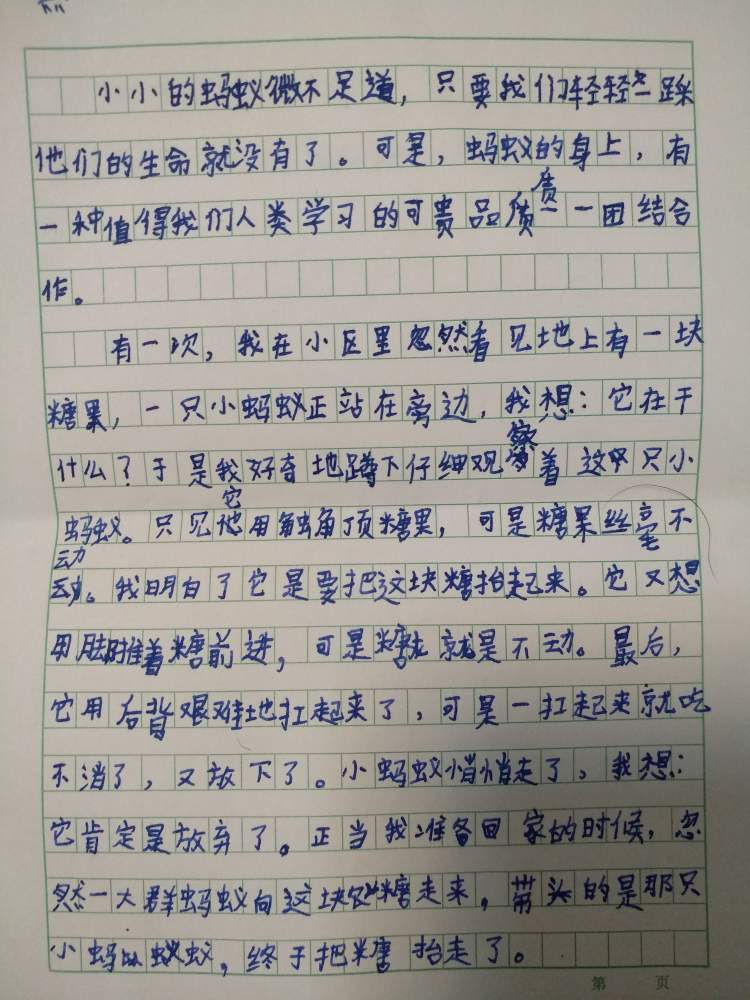 小小的蚂蚁微不足道，只要我们轻轻一踩
他们的生命就没有了。可是，蚂蚁的身上，有
一种值得我们人类学习的可贵品质一一团结合
作。
有一次，我在小区里忽然看见地上有一块
糖果，一只小蚂蚁正站在旁边，我想：它在干
什么？于是我好奇地蹲下仔细观察着这只小
蚂蚁。只见它用触角顶糖果，可是糖果丝毫不
动。我明白了它是要把这块糖抬起来。它又想
用脚推着糖前进，可是糖就是不动。最后，
它用后背艰难地扛起来了，可是一扛起来就吃
不消了，又放下了。小蚂蚁悄悄走了，我想：
它肯定是放弃了。正当我准备回家的时候，忽
然一大群蚂蚁向这块糖走来，带头的是那只
小蚂蚁，终于把糖抬走了。
第 页